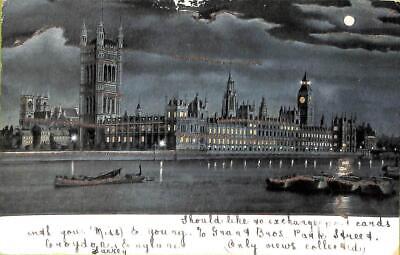 Should like to exchange post cards
with you (Miss) E young. To Grant Bros. Park Street.
Croydon England (Only views collected)
Surrey